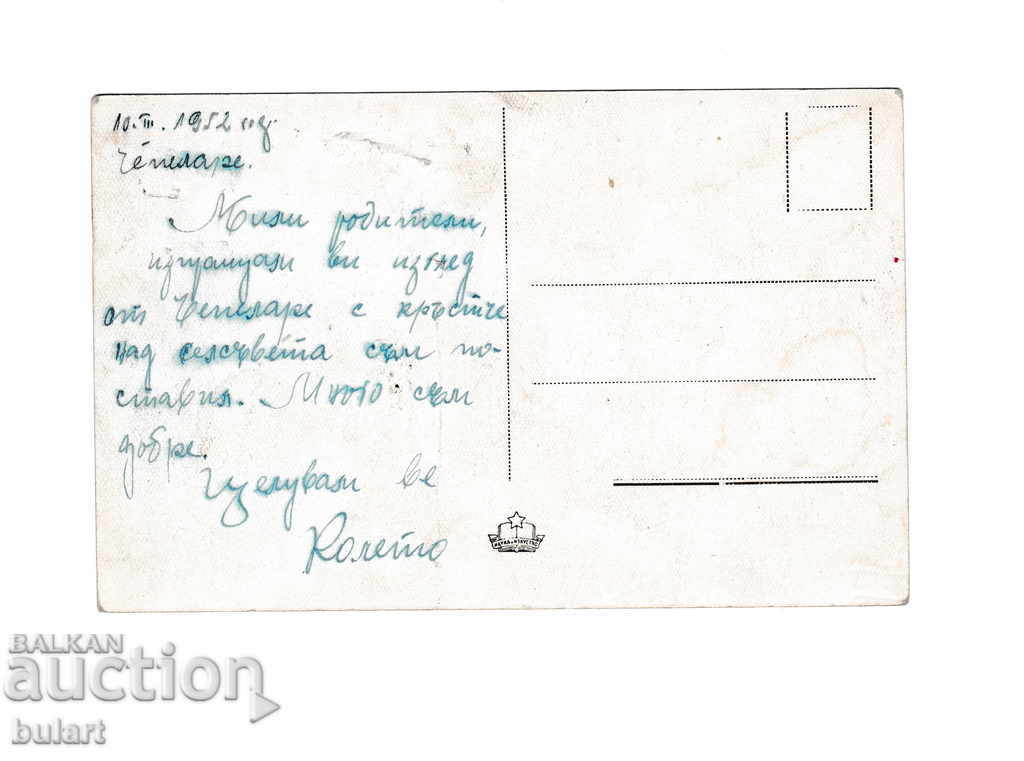 10.III.1952 год
Чепеларе.
Мили родители,
изпращам ви изглед
от Чепеларе с кръстче
над селсъвета съм по-
ставил. Много съм
добре.
Целувам ве
Колето
НАУКА И ИЗКУСТВО
BALKAN
auction
bulart